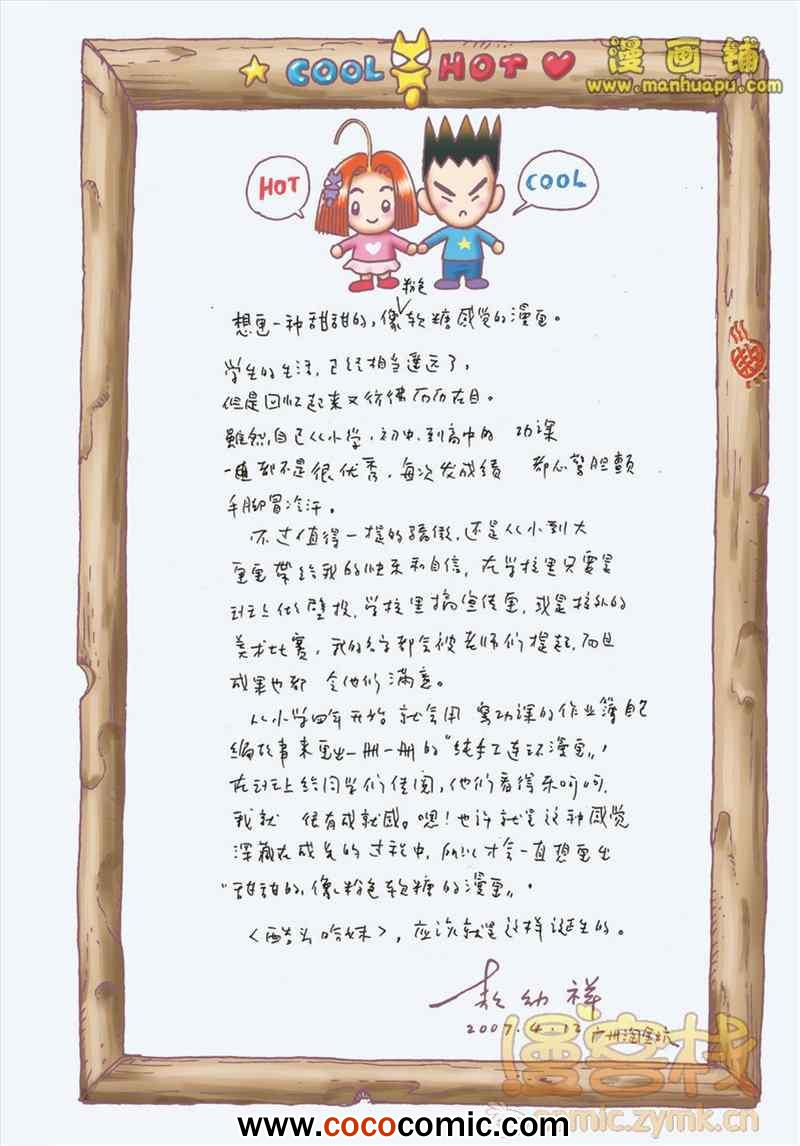 COOL HOT
漫画铺
www.manhuapu.com
HOT
COOL
粉色
想画一种甜甜的，像软糖感觉的漫画。
学生的生活，已经相当遥远了，
但是回忆起来又彷彿历历在目。
雖然自己从小学、初中、到高中的 功课
一直都不是很优秀，每次发成绩 都心驚胆顫
手脚冒冷汗。
不过值得一提的骄傲，还是从小到大
画画带给我的快乐和自信，在学校里只要是
班上做壁报，学校里搞宣传画，或是校外的
美术比赛，我的名字都会被老师们提起，而且
成果也都 令他们滿意。
从小学四年开始就会用 寫功课的作业簿自己
编故事来画出一册一册的"纯手工连环漫画"，
在班上给同学们传阅，他们看得乐呵呵，
我就 很有成就感。嗯！也许就是这种感觉
深藏在成长的过程中，所以才会一直想画出
"甜甜的，像粉色软糖的漫画"，
〈酷头哈妹〉，应该就是这样诞生的。
敖幼祥
2007.4.12 广州淘金坑
漫客栈
comic.zymk.cn
www.cococomic.com